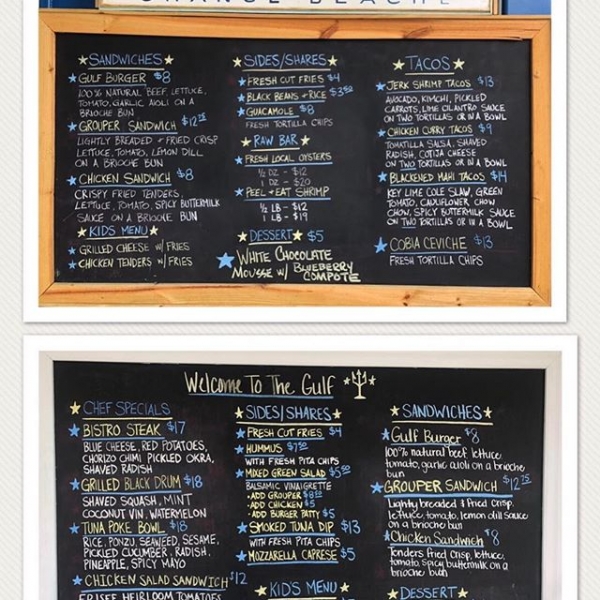 ORANGE BEACH
SANDWICHES
GULF BURGER $8
100% NATURAL BEEF, LETTUCE,
TOMATO, GARLIC AIOLI ON A
BRIOCHE BUN
GROUPER SANDWICH $12.75
LIGHTLY BREADED & FRIED CRISP
LETTUCE, TOMATO, LEMON DILL
ON A BRIOCHE BUN
CHICKEN SANDWICH $8
CRISPY FRIED TENDERS,
LETTUCE, TOMATO, SPICY BUTTERMILK
SAUCE ON A BRIOCHE BUN
KIDS MENU
GRILLED CHEESE W/ FRIES
CHICKEN TENDERS W/ FRIES
SIDES/SHARES
FRESH CUT FRIES $4
BLACK BEANS & RICE $3.50
GUACAMOLE $8
FRESH TORTILLA CHIPS
RAW BAR
FRESH LOCAL OYSTERS
1/2 DZ - $12
1 DZ - $20
PEEL & EAT SHRIMP
1/2 LB - $12
1 LB - $19
DESSERT $5
WHITE CHOCOLATE
MOUSSE W/ BLUEBERRY
COMPOTE
TACOS
JERK SHRIMP TACOS $13
AVOCADO, KIMCHI, PICKLED
CARROTS, LIME CILANTRO SAUCE
ON TWO TORTILLAS OR IN A BOWL
CHICKEN CURRY TACOS $9
TOMATILLA SALSA, SHAVED
RADISH, COTIJA CHEESE
ON TWO TORTILLAS OR IN A BOWL
BLACKENED MAHI TACOS $14
KEY LIME COLE SLAW, GREEN
TOMATO, CAULIFLOWER CHOW
CHOW, SPICY BUTTERMILK SAUCE
ON TWO TORTILLAS OR IN A BOWL
COBIA CEVICHE $13
FRESH TORTILLA CHIPS
Welcome To The Gulf
CHEF SPECIALS
BISTRO STEAK $17
BLUE CHEESE, RED POTATOES,
CHORIZO CHIMI PICKLED OKRA,
SHAVED RADISH
GRILLED BLACK DRUM $18
SHAVED SQUASH, MINT
COCONUT VIN, WATERMELON
TUNA POKE BOWL $18
RICE, PONZU, SEAWEED, SESAME,
PICKLED CUCUMBER, RADISH,
PINEAPPLE, SPICY MAYO
CHICKEN SALAD SANDWICH $12
FRISEE HEIRLOOM TOMATOES
SIDES/SHARES
FRESH CUT FRIES $4
HUMMUS $7
WITH FRESH PITA CHIPS
MIXED GREEN SALAD $5.50
BALSAMIC VINAIGRETTE
·ADD GROUPER
·ADD CHICKEN $5
·ADD BURGER PATTY $5
SMOKED TUNA DIP $13
WITH FRESH PITA CHIPS
MOZZARELLA CAPRESE $5
KIDS MENU
SANDWICHES
Gulf Burger $8
100% natural beef lettuce
tomato, garlic aioli on a brioche
bun
GROUPER SANDWICH $12.75
Lightly breaded & fried crisp
lettuce, tomato, lemon dill sauce
on a brioche bun
Chicken Sandwich $8
Tenders fried crisp, lettuce,
tomato spicy buttermilk on a
brioche bun
DESSERT